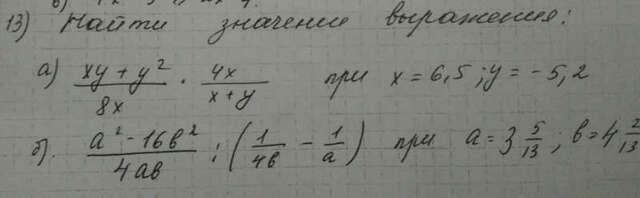 13) Найти значение выражения:
а) (xy + y²)/(8x) · (4x)/(x + y) при x = 6,5 ; y = - 5,2
б). (a² - 16в²)/(4aв) : (1/(4в) - 1/a) при a = 3 5/13 ; в = 4 2/13